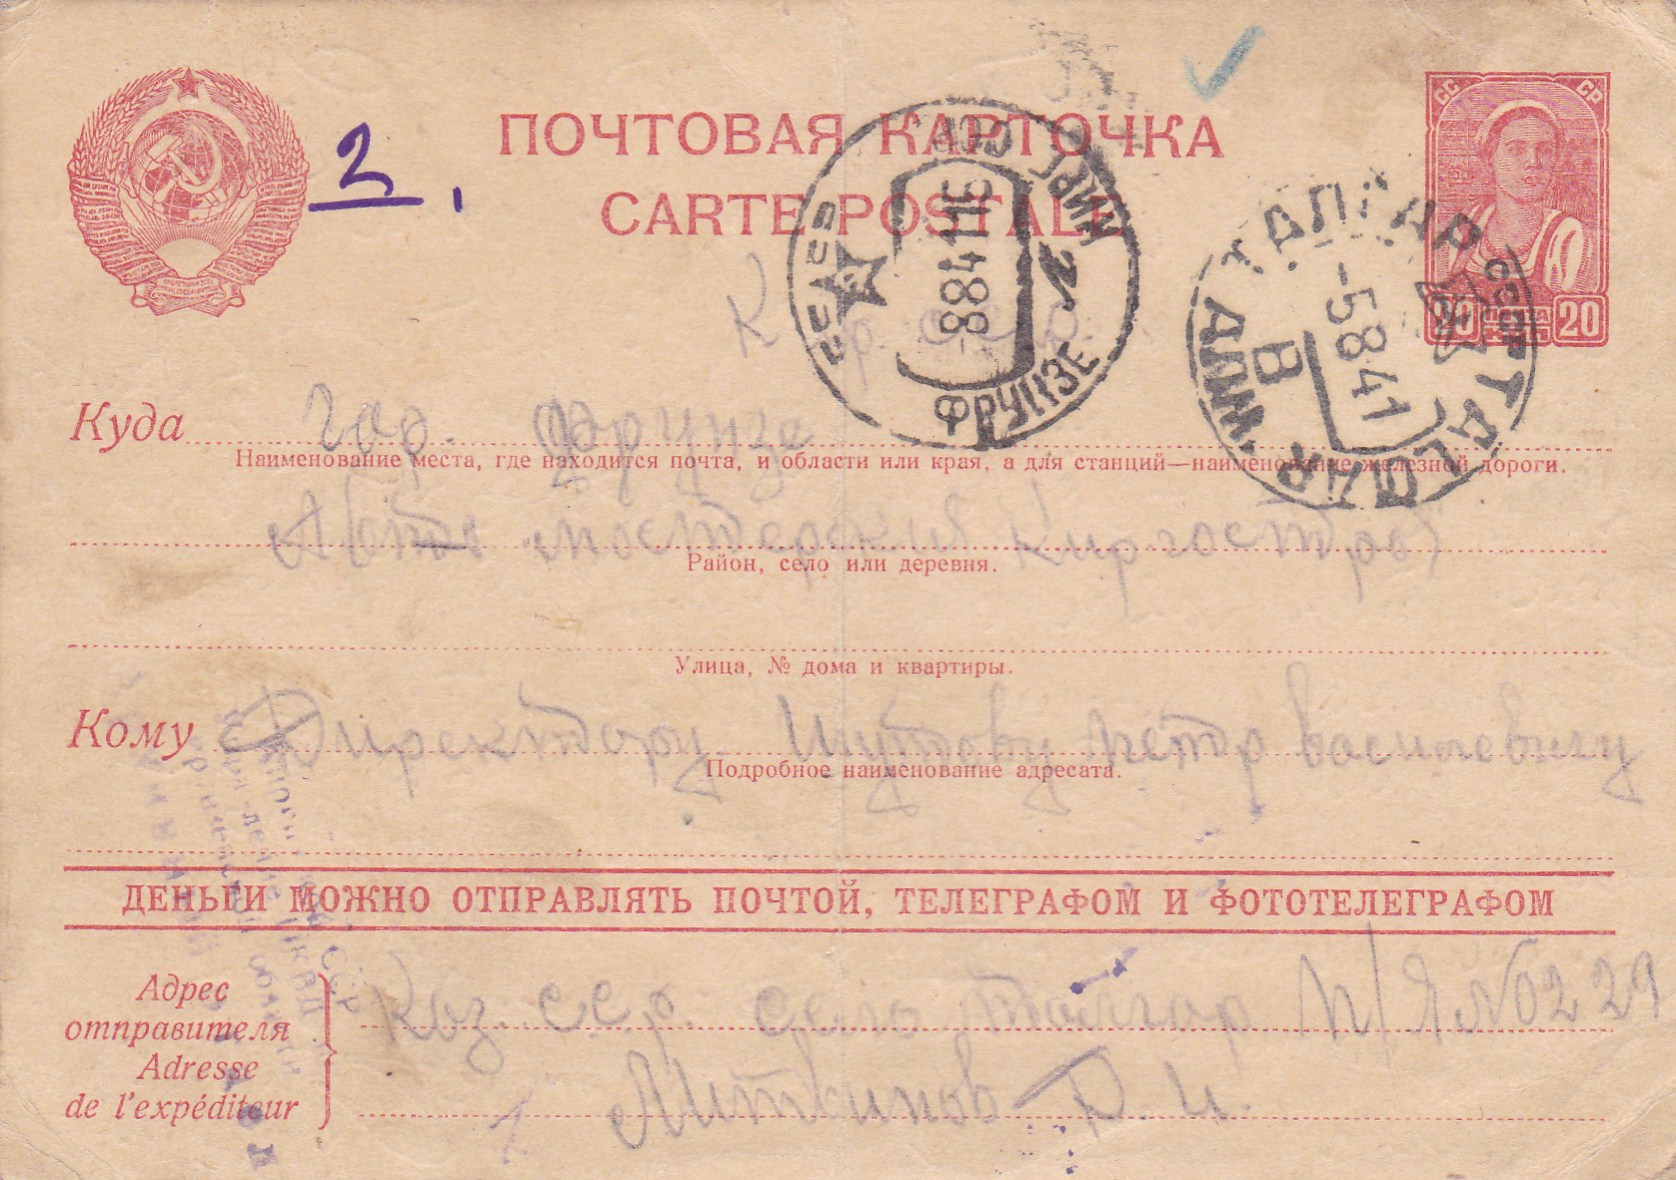 2.
ПОЧТОВАЯ КАРТОЧКА
CARTE POSTALE
СС СР
20 ПОЧТА 20
КИРГ. ССР
8841 16
ФРУНЗЕ
ТАЛГАР
-5841
В
TALGAR
Кир. сср.
Куда гор. Фрунзе
Наименование места, где находится почта, и области или края, а для станций—наименование железной дороги.
Авто мостерские Киргостроя
Район, село или деревня.
Улица, № дома и квартиры.
Кому Директору. Шутову Петр василевичу
Подробное наименование адресата.
ДЕНЬГИ МОЖНО ОТПРАВЛЯТЬ ПОЧТОЙ, ТЕЛЕГРАФОМ И ФОТОТЕЛЕГРАФОМ
Адрес
отправителя
Adresse
de l'expéditeur
Каз. сс.р. село Талгар П/Я №0229
Литвинов Д. И.